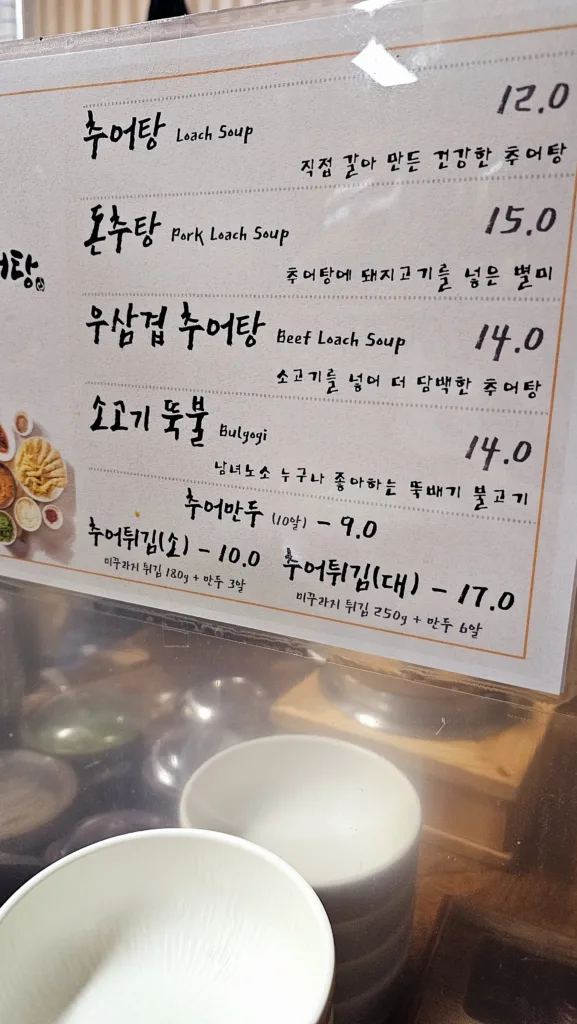 추어탕 Loach Soup 12.0
직접 갈아 만든 건강한 추어탕
돈추탕 Pork Loach Soup 15.0
추어탕에 돼지고기를 넣은 별미
우삼겹 추어탕 Beef Loach Soup 14.0
소고기를 넣어 더 담백한 추어탕
소고기 뚝불 Bulgogi 14.0
남녀노소 누구나 좋아하는 뚝배기 불고기
추어만두 (10알) - 9.0
추어튀김(소) - 10.0
미꾸라지 튀김 180g + 만두 3알
추어튀김(대) - 17.0
미꾸라지 튀김 250g + 만두 6알